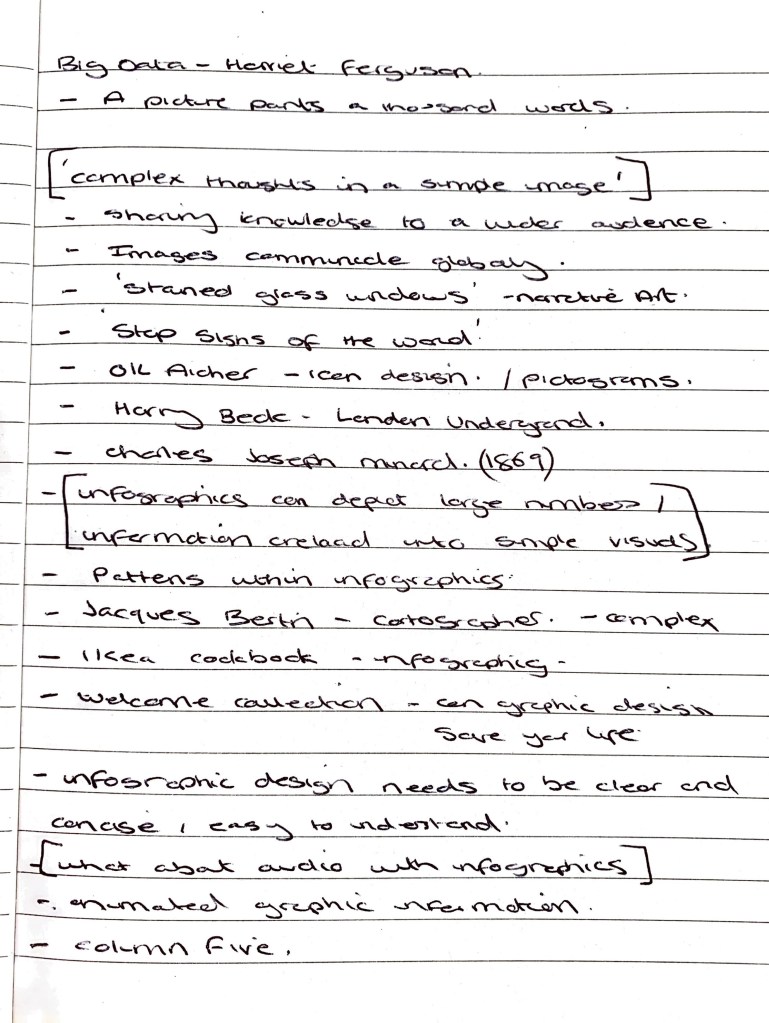 Big Data - Harriet Ferguson.
- A picture paints a thousand words.
['complex thoughts in a simple image']
- sharing knowledge to a wider audience.
- Images communicate globaly.
- 'stained glass windows' - narrative Art.
- 'Stop Signs of the world'
- Otl Aicher - icon design. / pictograms.
- Harry Beck - London Underground.
- Charles Joseph minard. (1869)
- [infographics can depict large numbers /
information into simple visuals]
- Patterns within infographics.
- Jacques Bertin - cartographer. - complex
- Ikea cookbook - infographics -
- welcome collection - can graphic design
save your life.
- infographic design needs to be clear and
concise, easy to understand.
- [what about audio with infographics]
- animated graphic information.
- column five.